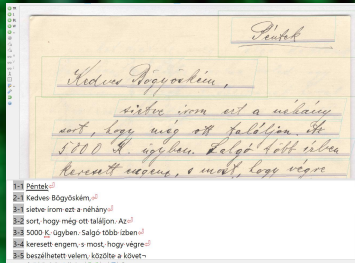 Péntek
Kedves Bögyöském,
sietve irom ezt a néhány
sort, hogy még ott találjon. Az
5000 K. ügyben. Salgó több izben
keresett engem, s most, hogy végre
1-1 Péntek
2-1 Kedves Bögyöském,
3-1 sietve irom ezt a néhány
3-2 sort, hogy még ott találjon. Az
3-3 5000 K. ügyben. Salgó több izben
3-4 keresett engem, s most, hogy végre
3-5 beszélhetett velem, közölte a követ¬